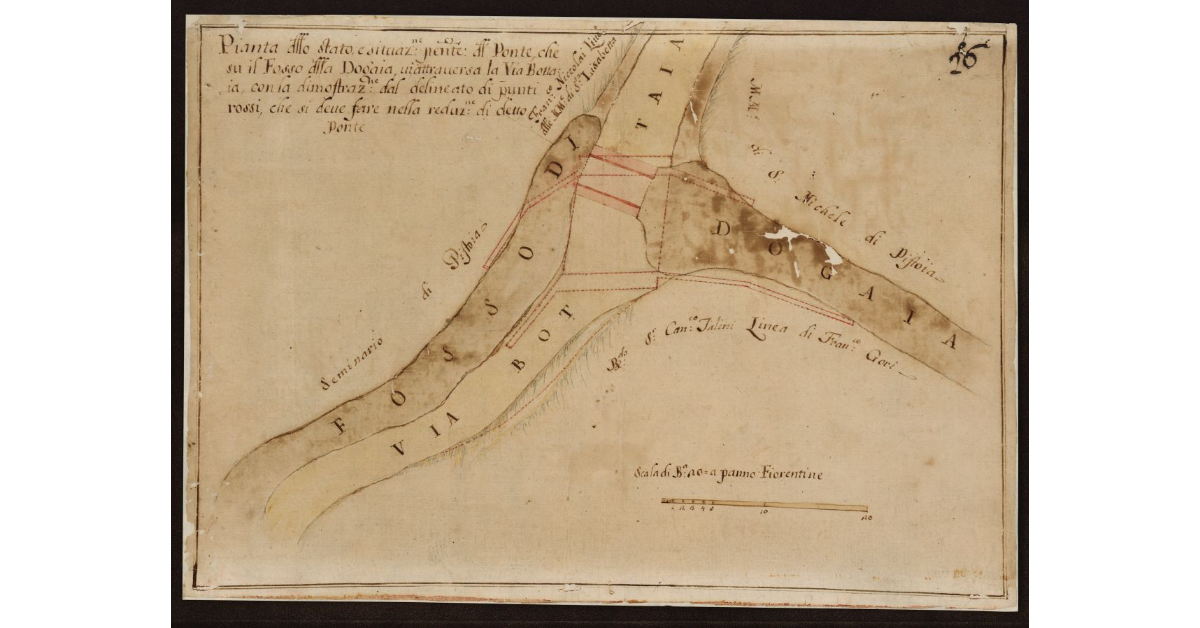 Pianta dello stato, e situaz:ne p̃ente: del Ponte, che
su il Fosso della Dogaia, ... attraversa la Via Botta:
ia, con la dimostraz:ne dal delineato di punti
rossi, che si deve fare nella redaz:ne di detto
Ponte
Fran:co Niccolai Live:
alle MM:e di S:a Lisabetta
N:o 26
MM:e di S: Michele di Pistoia
FOSSO DI DOGAIA
VIA BOTTAIA
Seminario di Pistoia
R:do S:r Can:co Talini Linea di Fran:co Gori
Scala di B:a 20 a panno Fiorentine
1 2 3 4 5 10 20